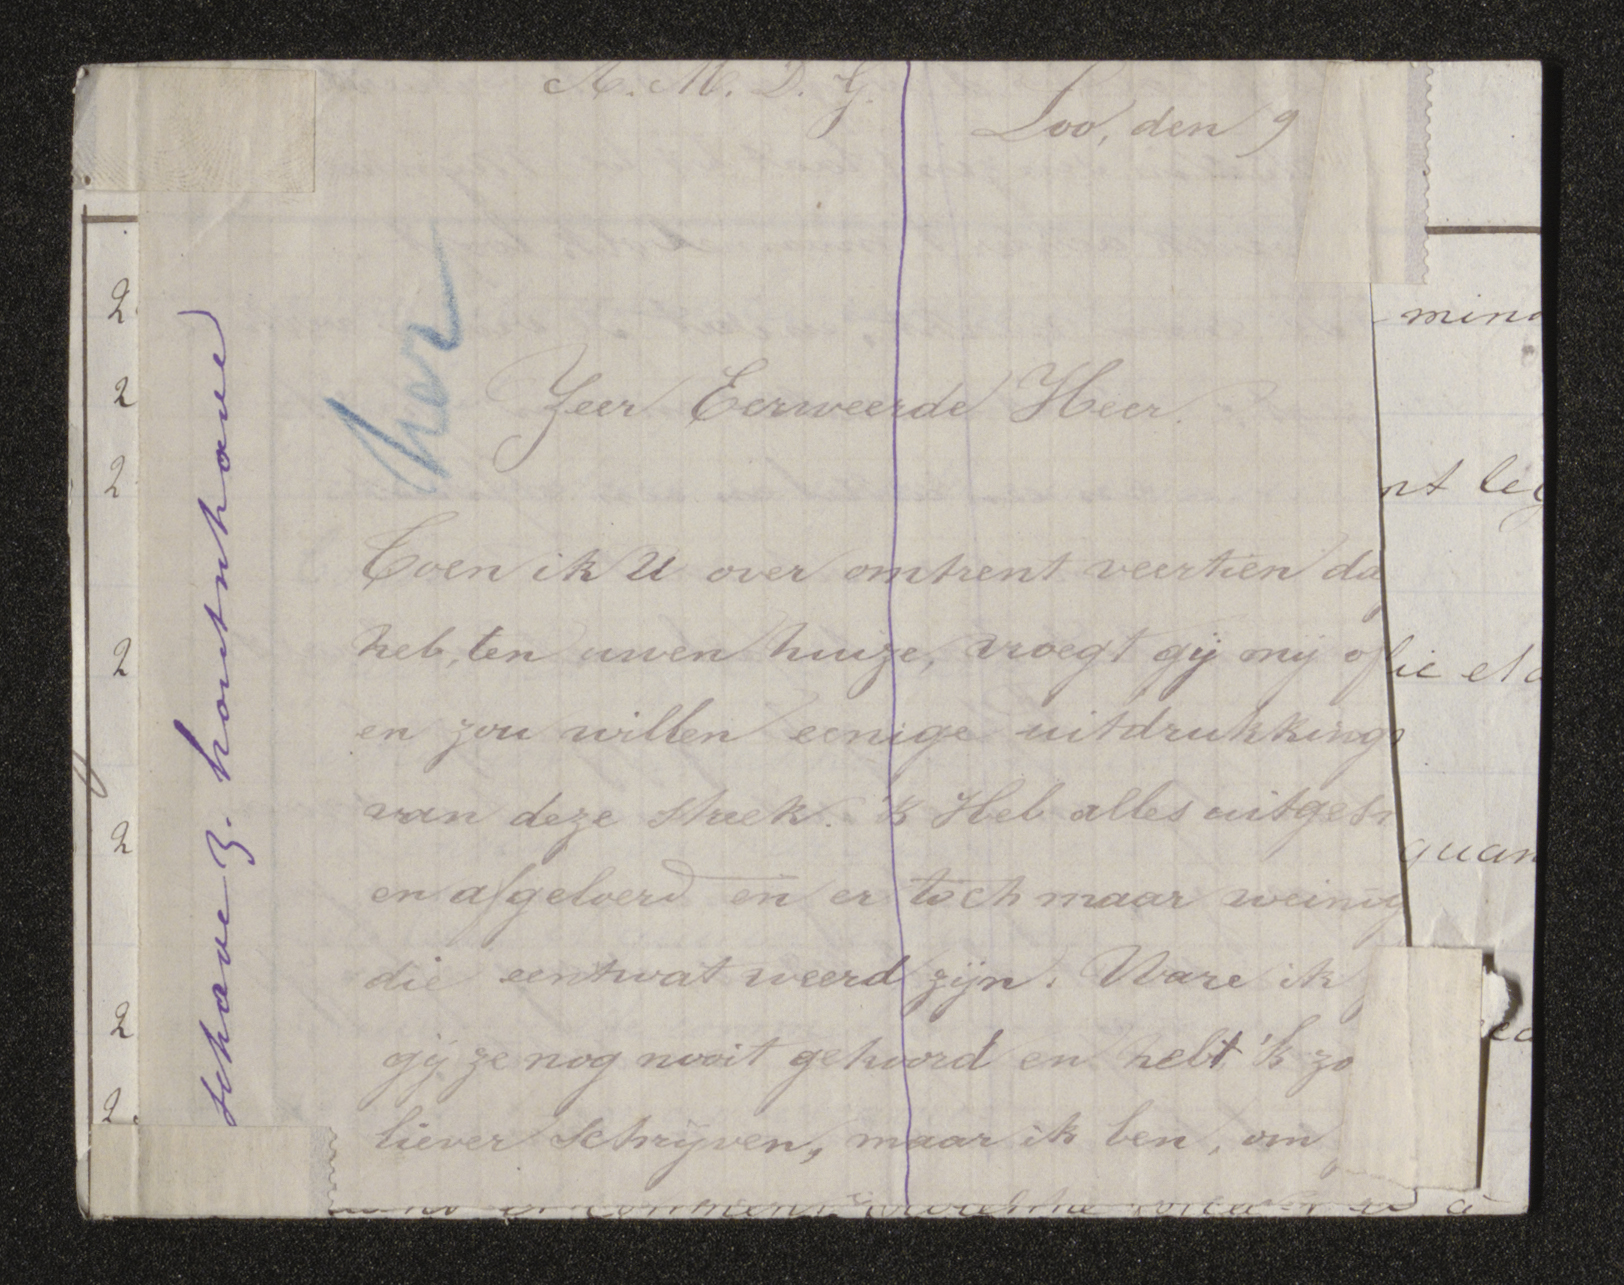 A. M. D. G.
Loo, den 9
Zeer Eerweerde Heer.
Toen ik U over omtrent veertien da
heb, ten uwen huize, vroegt gij mij of
en zou willen eenige uitdrukkings
van deze streek. 'k Heb alles uitget
en afgeloerd en er toch maar weinig
die eentwat weerd zijn. Ware ik
gij ze nog nooit gehoord en hebt 'k zo
liever schrijven, maar ik ben, om
schave z. houtnhave
hor
2
2
2
2
2
2
2.
mind
nt leg
lie et a
quan